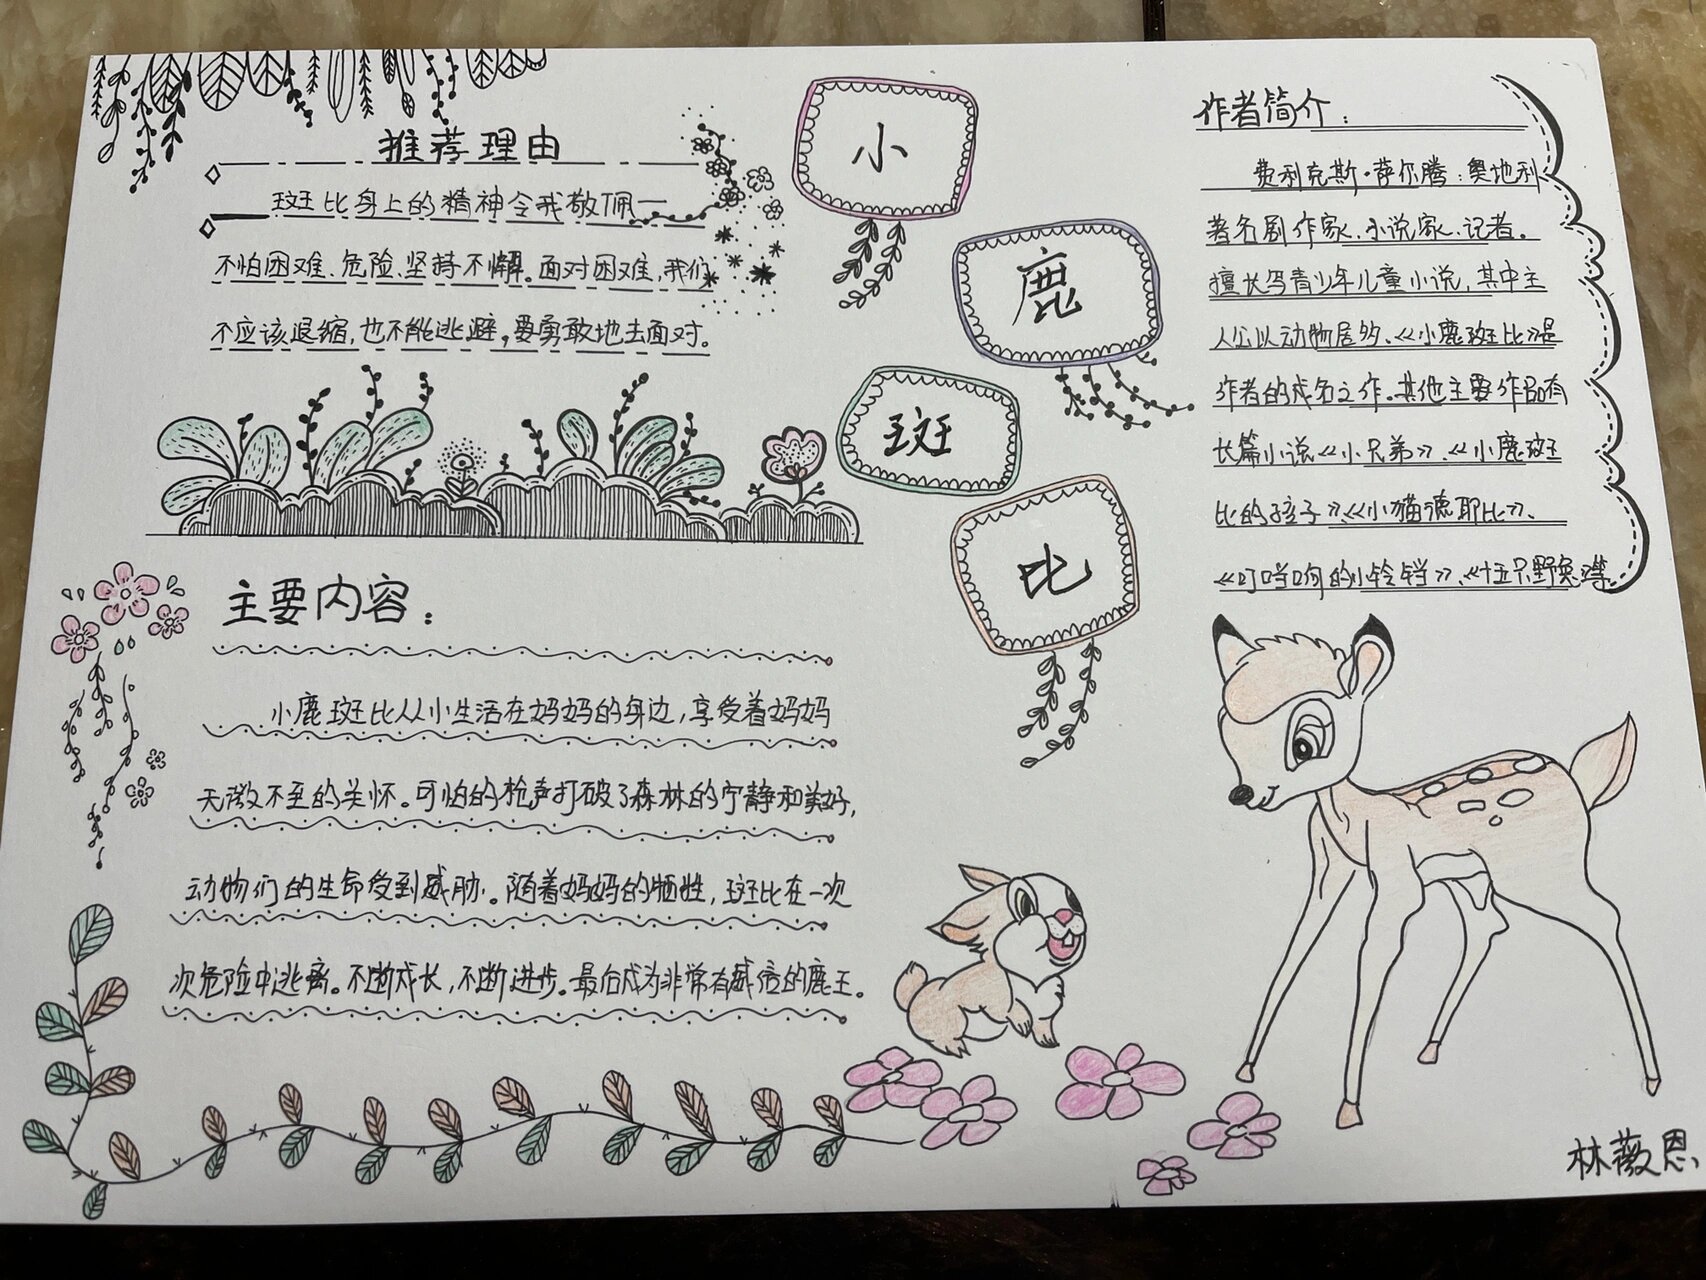 小
鹿
斑
比
推荐理由
斑比身上的精神令我敬佩—
不怕困难、危险、坚持不懈。面对困难,我们
不应该退缩,也不能逃避,要勇敢地去面对。
主要内容:
小鹿斑比从小生活在妈妈的身边,享受着妈妈
无微不至的关怀。可怕的枪声打破了森林的宁静和美好,
动物们的生命受到威胁。随着妈妈的牺牲,斑比在一次
次危险中逃离。不断成长,不断进步。最后成为非常有威信的鹿王。
作者简介:
费利克斯·萨尔腾:奥地利
著名剧作家、小说家、记者。
擅长写青少年儿童小说,其中主
人公以动物居多、《小鹿斑比》是
作者的成名之作。其他主要作品有
长篇小说《小兄弟》、《小鹿斑
比的孩子》《小猫德耶比》、
《叮当响的小铃铛》、《十五只野兔》等。
林薇恩